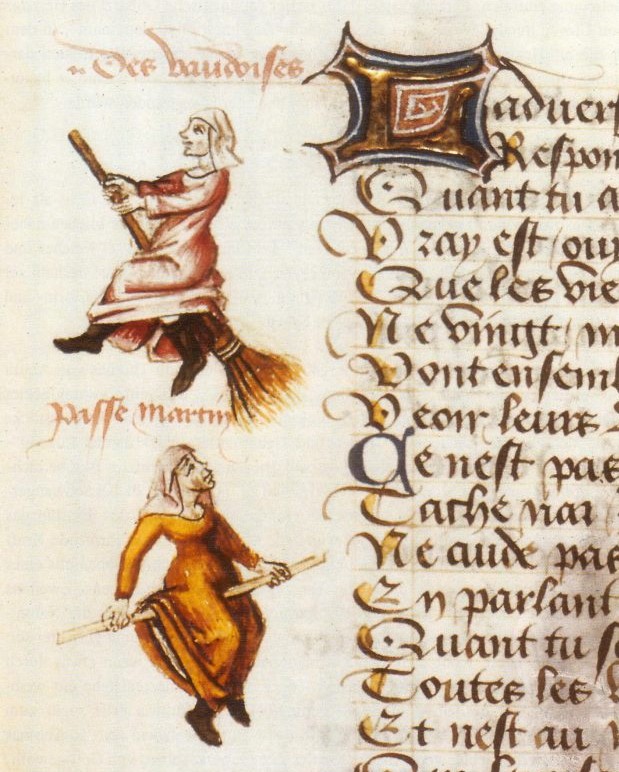 Des vaudoises
passe martin
L aduers
Respon
Quant tu a
Vray est / ouy
Que les vie
Ne vingt / m
Vont ensemb
Veoir leurs
Ce nest pas
Tache nai
Ne aude pas
En parlant
Quant tu s
Toutes les
Et nest au